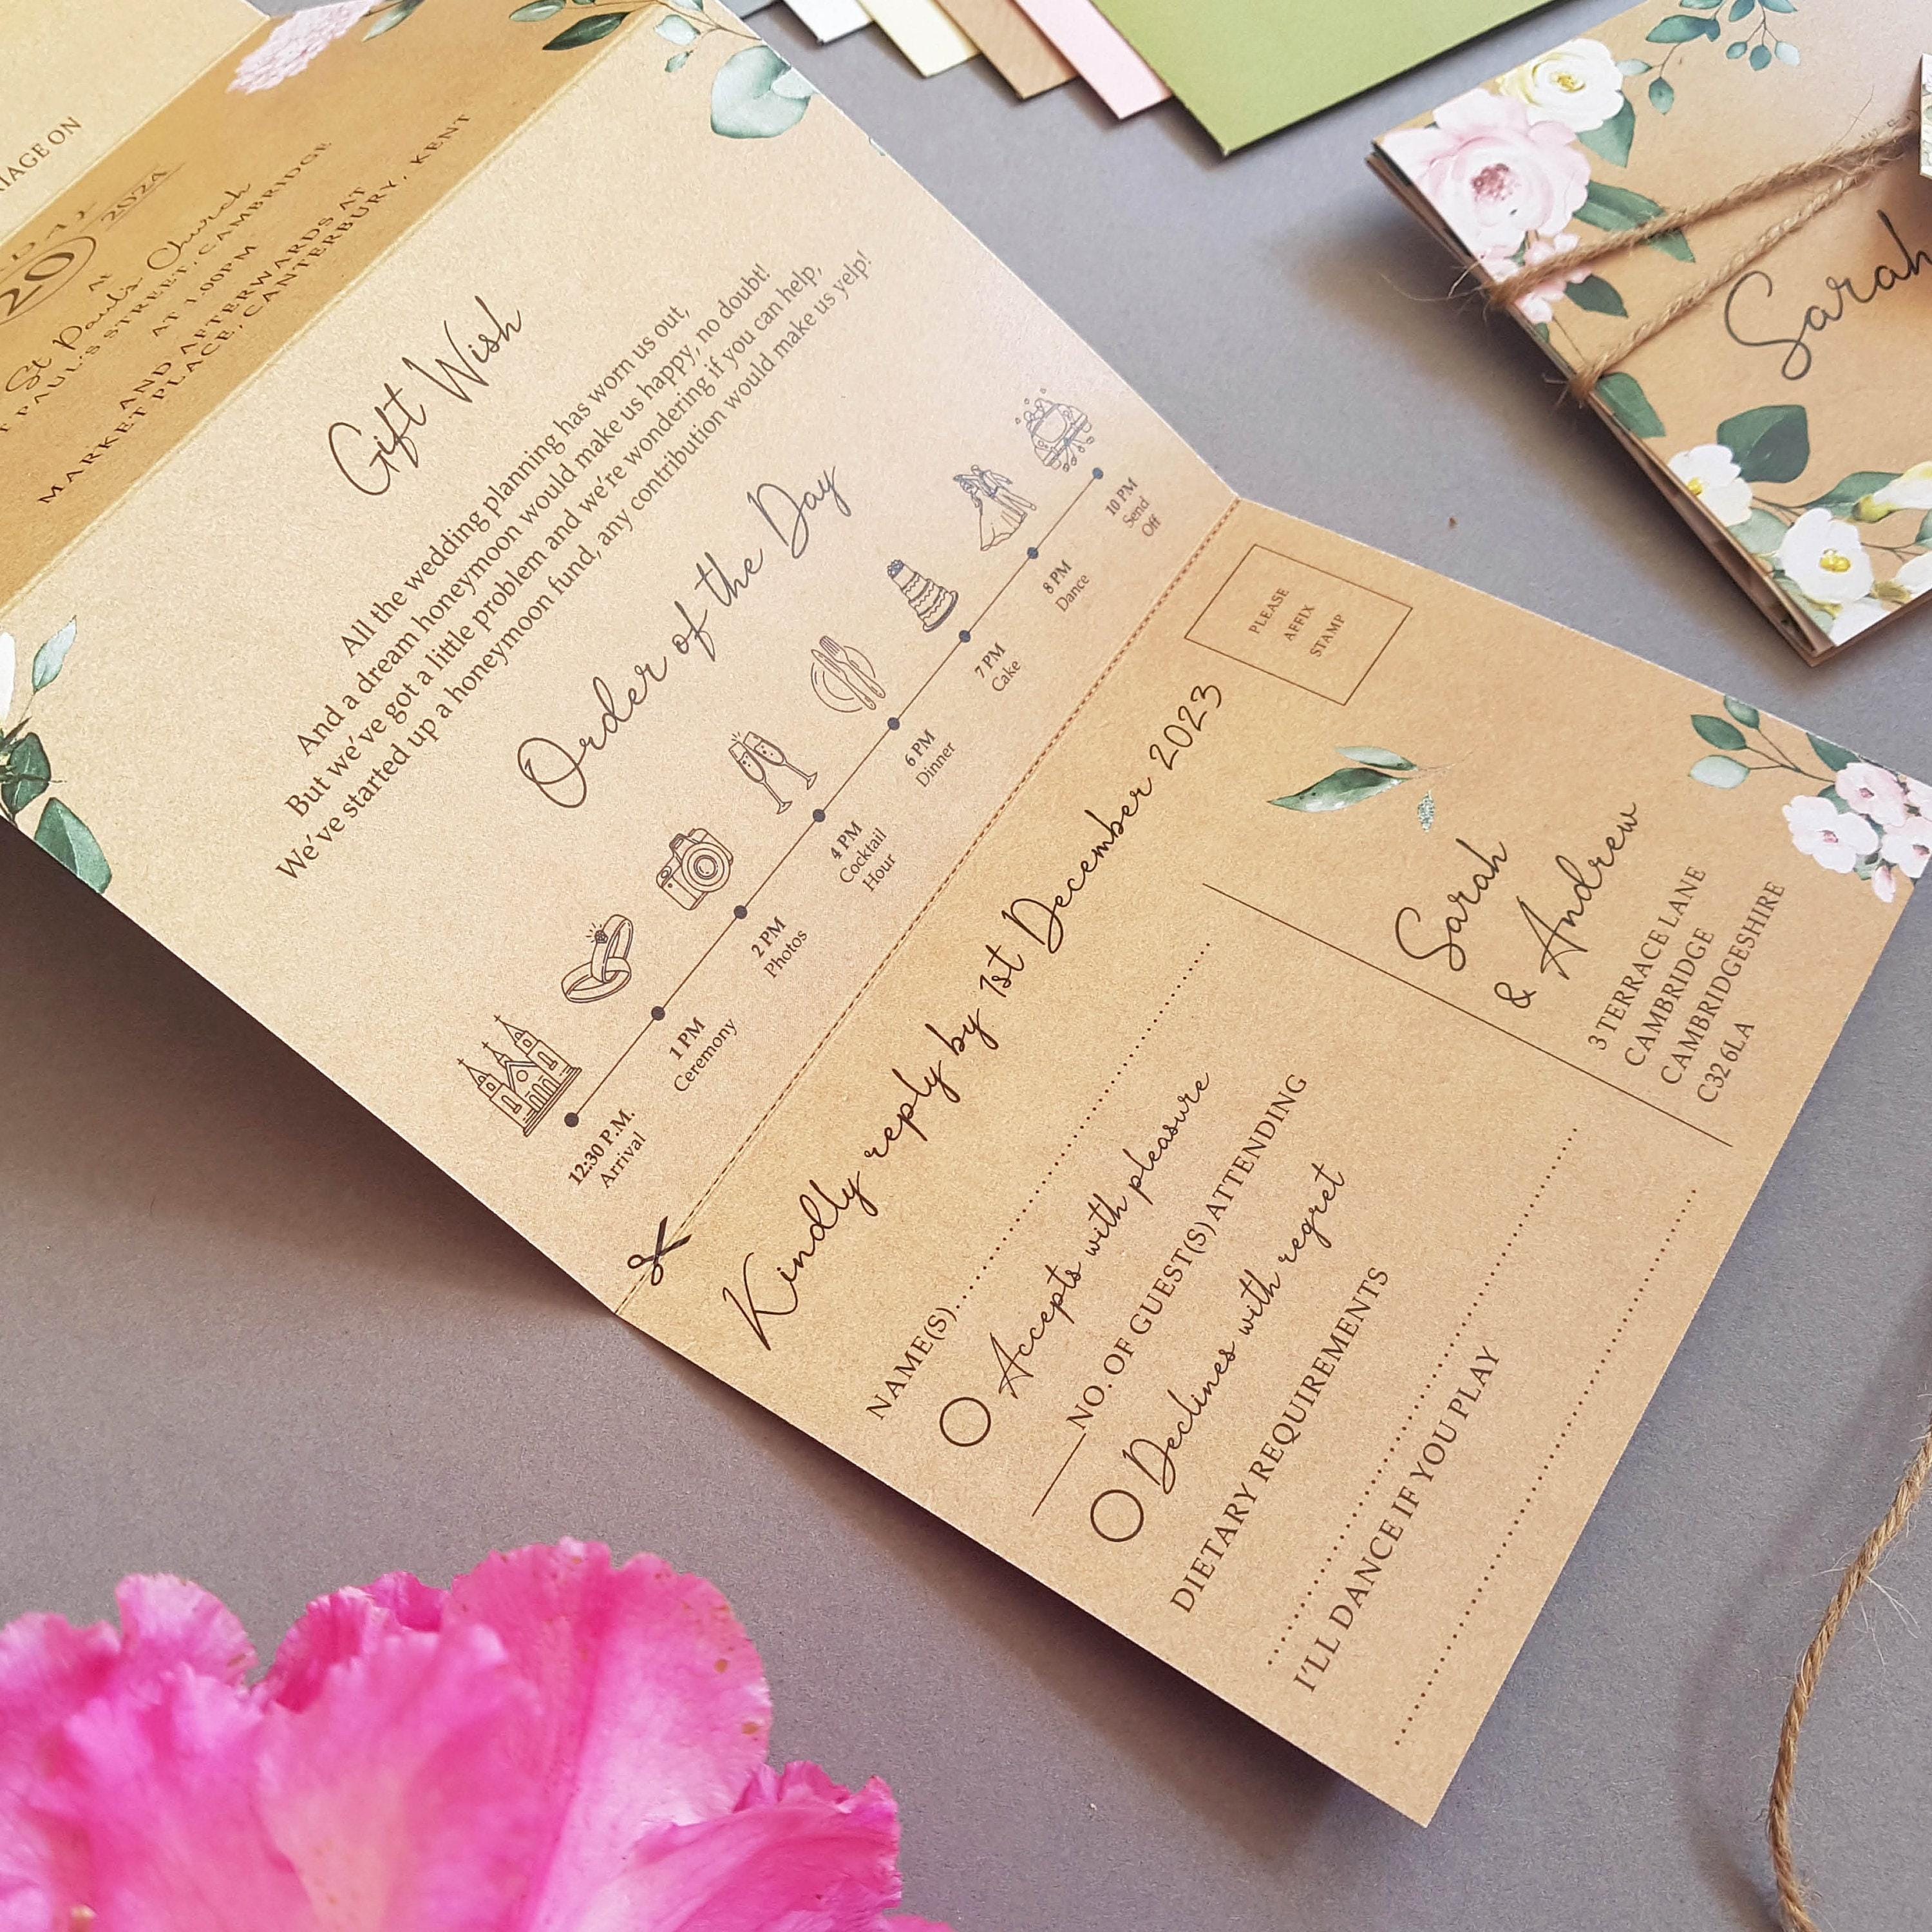 20
2024
AT
St Paul's Church
PAUL'S STREET, CAMBRIDGE
AT 1.00PM
AND AFTERWARDS AT
MARKET PLACE, CANTERBURY, KENT
Gift Wish
All the wedding planning has worn us out,
And a dream honeymoon would make us happy, no doubt!
But we've got a little problem and we're wondering if you can help,
We've started up a honeymoon fund, any contribution would make us yelp!
Order of the Day
12:30 P.M.
Arrival
1 PM
Ceremony
2 PM
Photos
4 PM
Cocktail
Hour
6 PM
Dinner
7 PM
Cake
8 PM
Dance
10 PM
Send
Off
Kindly reply by 1st December 2023
NAME(S)
Accepts with pleasure
NO. OF GUEST(S) ATTENDING
Declines with regret
DIETARY REQUIREMENTS
I'LL DANCE IF YOU PLAY
PLEASE
AFFIX
STAMP
Sarah
& Andrew
3 TERRACE LANE
CAMBRIDGE
CAMBRIDGESHIRE
C32 6LA
Sarah